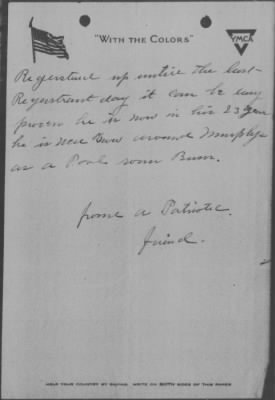 "WITH THE COLORS"
YMCA
Regerstred up untice the last
Regerstrant day it can be easy
proven he is now in his 23 year
he is near Town around Murphys
as a Pool room Bum.
from a Patriotic
friend.
HELP YOUR COUNTRY BY SAVING. WRITE ON BOTH SIDES OF THIS PAPER